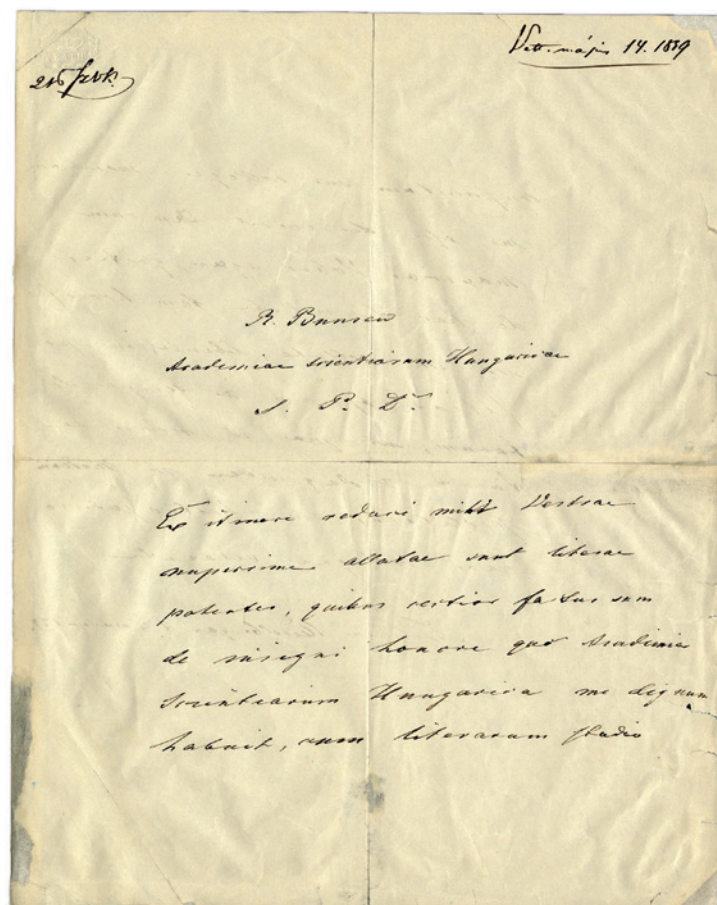 Vett. május 14. 1859
216
R. Bunsen
Academiae scientiarum Hungaricae
S. P. D.
Ex itinere reduci mihi Vestrae
nuperrime allatae sunt literae
patentes, quibus certior factus sum
de insigni honore quo Academia
Scientiarum Hungarica me dignum
habuit, cum literarum studio